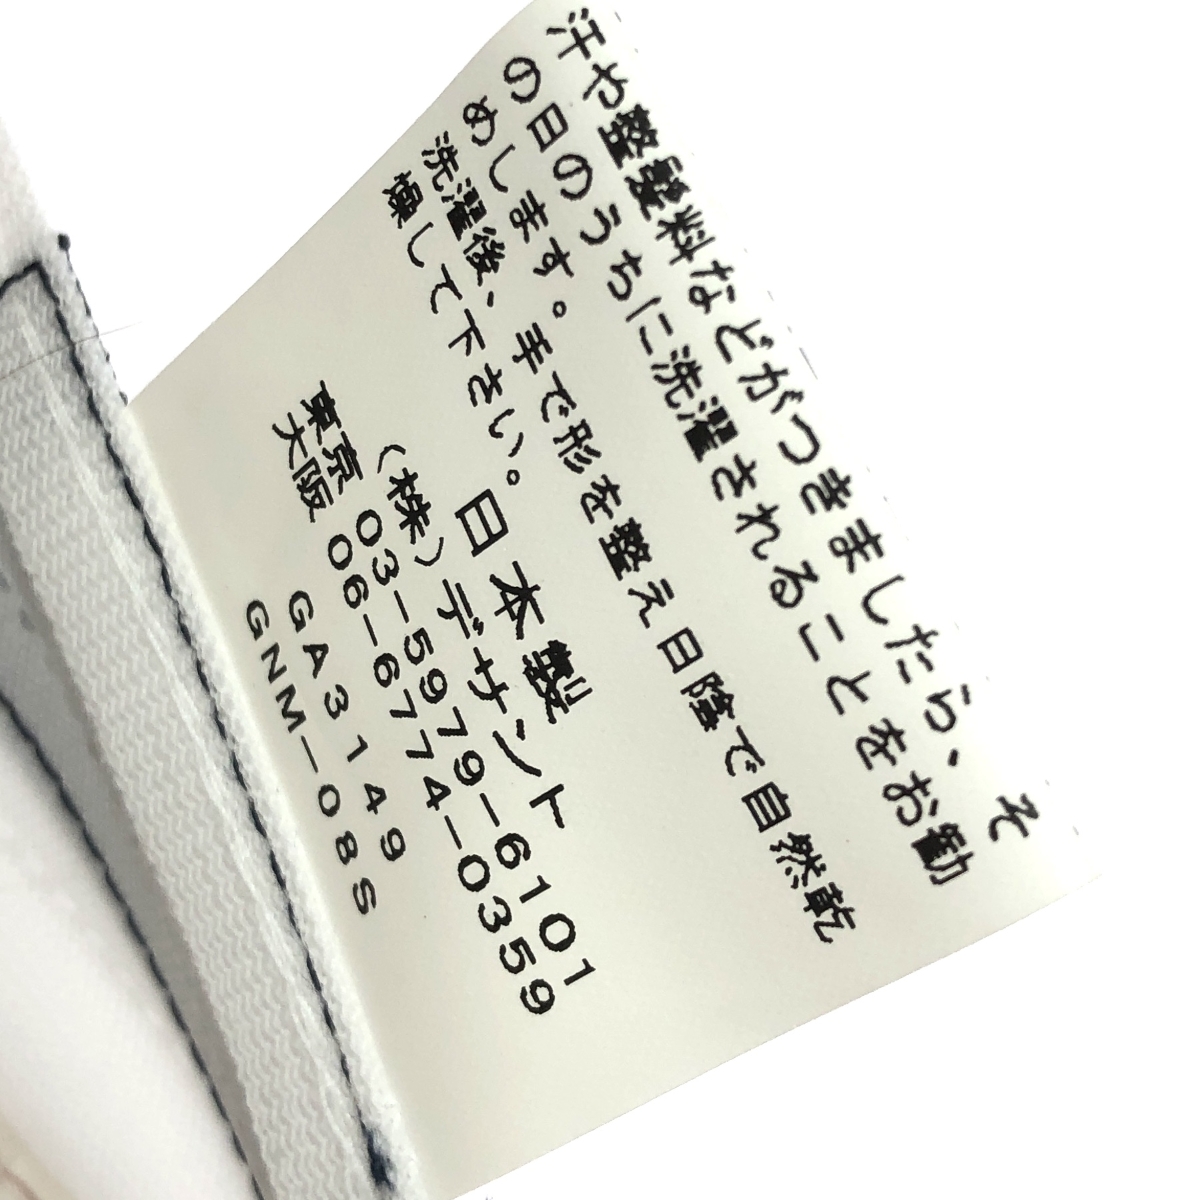 汗や整髪料などがつきましたら、そ
の日のうちに洗濯されることをお勧
めします。手で形を整え日陰で自然乾
洗濯後、
燥して下さい。
日本製
(株)デサント
東京 03-5979-6101
大阪 06-6774-0359
GA3149
GNM-08S